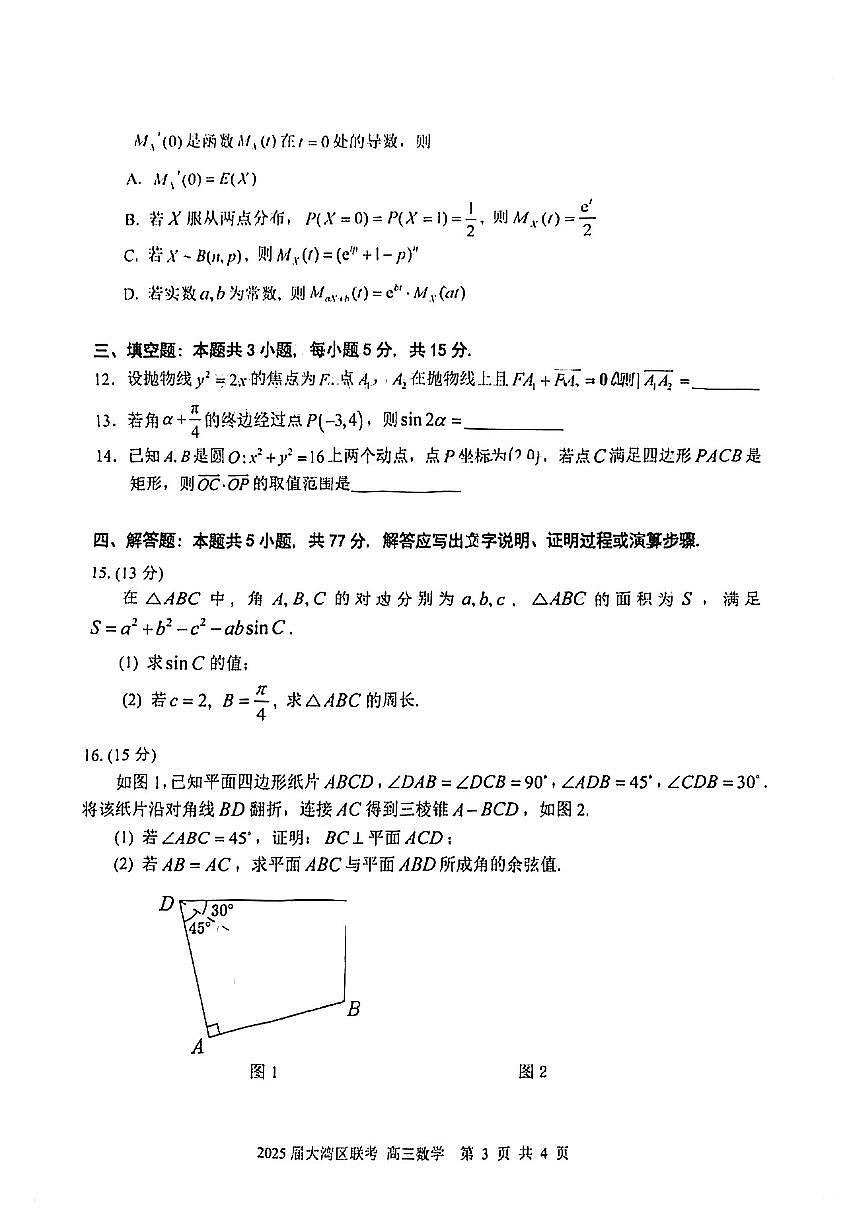 M_X'(0)是函数M_X(t)在t=0处的导数，则
A. M_X'(0)=E(X)
B. 若X服从两点分布，P(X=0)=P(X=1)=1/2，则M_X(t)=e^t/2
C. 若X~B(n,p)，则M_X(t)=(e^{tp}+1-p)^n
D. 若实数a,b为常数，则M_{aX+b}(t)=e^{bt}·M_X(at)
三、填空题：本题共3小题，每小题5分，共15分.
12. 设抛物线y²=2x的焦点为F，点A₁，A₂在抛物线上且FA₁+FA₂=0，则|A₁A₂|=
13. 若角α+π/4的终边经过点P(-3,4)，则sin2α=
14. 已知A,B是圆O:x²+y²=16上两个动点，点P坐标为(2,0)，若点C满足四边形PACB是
矩形，则OC·OP的取值范围是
四、解答题：本题共5小题，共77分，解答应写出文字说明、证明过程或演算步骤.
15.(13分)
在△ABC中，角A,B,C的对边分别为a,b,c，△ABC的面积为S，满足
S=a²+b²-c²-absinC.
(1) 求sinC的值；
(2) 若c=2，B=π/4，求△ABC的周长.
16.(15分)
如图1,已知平面四边形纸片ABCD，∠DAB=∠DCB=90°，∠ADB=45°，∠CDB=30°.
将该纸片沿对角线BD翻折，连接AC得到三棱锥A-BCD，如图2.
(1) 若∠ABC=45°，证明：BC⊥平面ACD；
(2) 若AB=AC，求平面ABC与平面ABD所成角的余弦值.
D
30°
45°
B
A
图1
图2
2025届大湾区联考 高三数学 第3页共4页